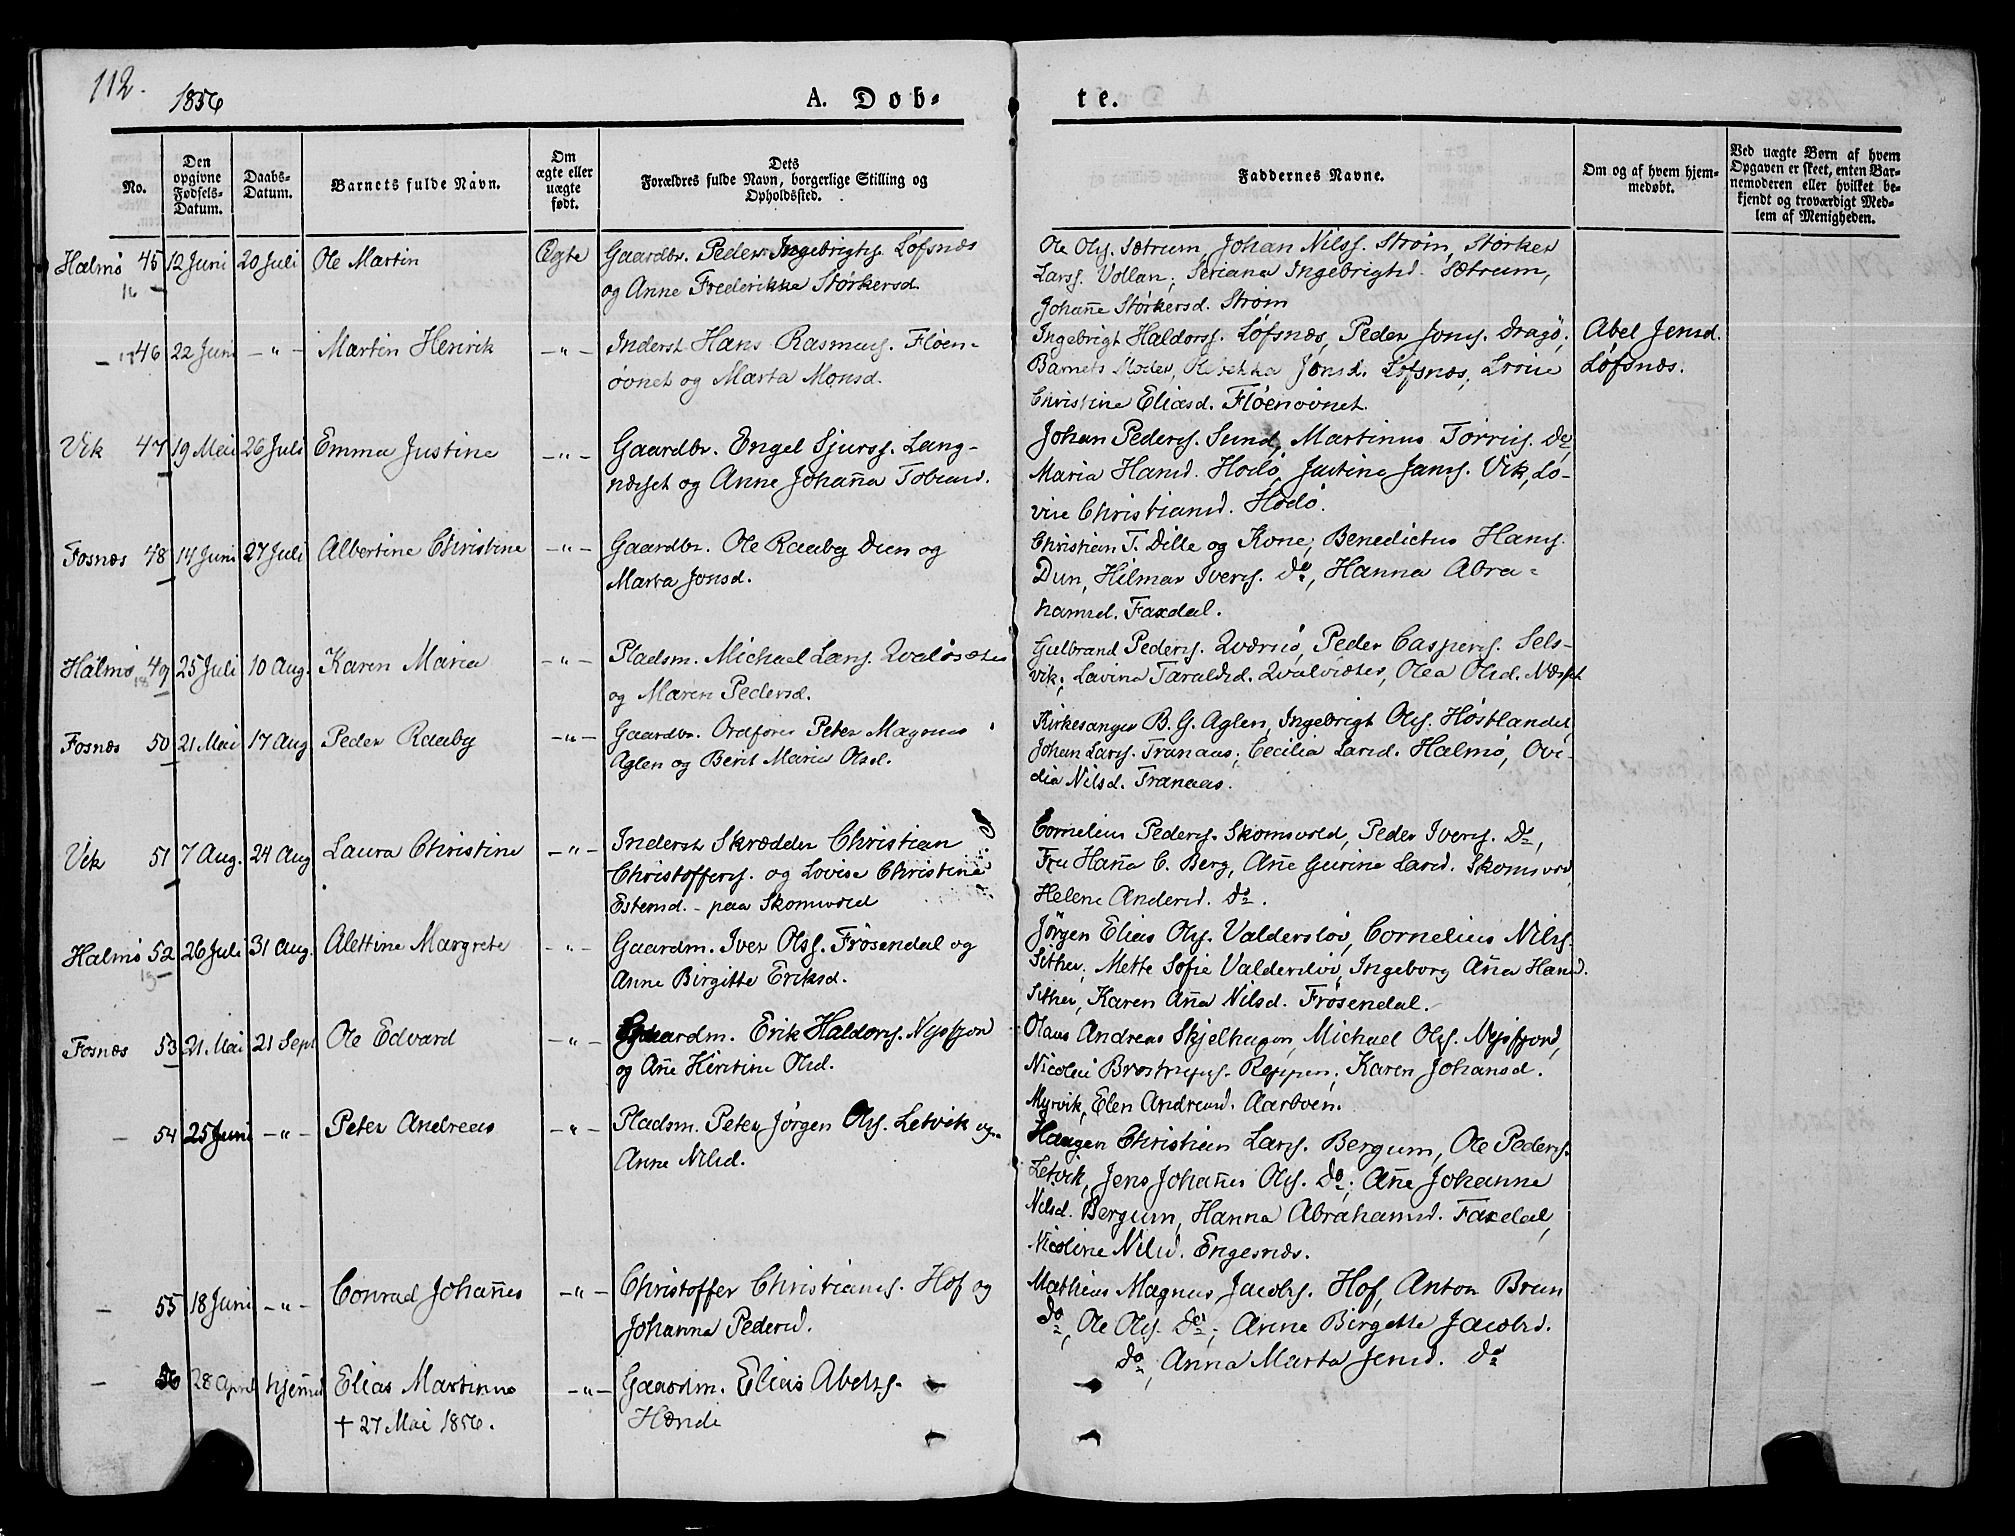 112.
1856
A. Døb-
te.
No.
Den opgivne Fødsels-Datum.
Daabs-Datum.
Barnets fulde Navn.
Om ægte eller uægte født.
Dets Forældres fulde Navn, borgerlige Stilling og Opholdssted.
Faddernes Navne.
Om og af hvem hjemmedøbt.
Ved uægte Børn af hvem Opgaven er skeet, enten Barnemoderen eller hvilket bekjendt og troværdigt Medlem af Menigheden.
Halmø 45 12 Juni 20 Juli Ole Martin Ægte Gaardbr. Peder Ingebrigts. Løfsnæs
16
og Anne Frederikke Størkersd.
Ole Ols. Sætrum, Johan Nilss. Strøm, Størker
Larss. Vollan; Seriana Ingebrigtsd. Sætrum,
Johañe Størkersd. Strøm
— 17 46 22 Juni —"— Martin Henrik —"— Inderst Hans Rasmuss. Fløen-
øvnet og Marta Monsd.
Ingebrigt Haldorss. Løfsnæs, Peder Jons. Dragø;
Barnets Moder, Rebekka Jensd. Løfsnæs, Lovise
Christine Eliasd. Fløenøvnet.
Abel Jensd.
Løfsnæs.
Vik 47 19 Mai 26 Juli Emma Justine —"— Gaardbr. Engel Sjurss. Lang-
næsset og Anne Johaña Tobiasd.
Johan Peders. Sund, Martinus Torris. do,
Maria Hansd. Hodø, Justine Jans. Vik, Lo-
vise Christiansd. Hodø.
Fosnæs 48 14 Juni 27 Juli Albertine Christine —"— Gaardbr. Ole Raaby Dun og
Marta Jonsd.
Christian T. Dille og Kone; Benedictus Hans.
Dun, Hilmar Ivers. do, Hanna Abra-
hamsd. Faxdal.
Halmø 49 25 Juli 10 Aug. Karen Maria —"— Pladsm. Michael Lars. Qvaløsæter
18
og Maren Pedersd.
Gulbrand Peders. Qværnø, Peder Caspers. Sels-
vik; Lavina Taraldsd. Qvalvsæter, Olea Olsd. Næsset
Fosnæs 50 21 Mai 17 Aug Peder Raaby —"— Gaardbr. Ordfører Peter Magnus
Aglen og Berit Maria Olsd.
Kirkesanger B. G. Aglen, Ingebrigt Ols. Høstlandet,
Johan Lars. Tranaas; Cecilia Larsd. Halmø, Ovi-
dia Nilsd. Tranaas.
Vik 51 7 Aug. 24 Aug Laura Christine —"— Inderst Skrædder Christian
Christoffers. og Lovise Christine
Estensd. - paa Skomsvold
Cornelius Peders. Skomsvold, Peder Ivers. Do,
Fru Haña C. Berg, Añe Gurine Larsd. Skomsvold,
Helene Andersd. Do.
Halmø 52 26 Juli 31 Aug. Alettine Margrete —"— Gaardm. Iver Ols. Frøsendal og
19
Anne Birgitte Eriksd.
Jørgen Elias Ols. Valdersløv, Cornelius Nils.
Sither; Mette Sofie Valdersløv, Ingeborg Aña Hansd.
Sither, Karen Aña Nilsd. Frøsendal.
Fosnæs 53 21 Mai 21 Sept Ole Edvard —"— Gaardm. Erik Haldors. Nysfjord
og Añe Herstine Olsd.
Olaus Andreas Skjelhagen, Michael Ols. Nysfjord,
Nicolai Brostrups. Reppen; Karen Johansd.
Myrvik, Elen Andreasd. Aarboen.
— 54 25 Juni —"— Peter Andreas —"— Pladsm. Peter Jørgen Ols. Letvik og
Anne Nilsd.
Haagen Christian Lars. Bergum, Ole Peders.
Letvik, Jens Johañes Ols. do; Añe Johanne
Nilsd. Bergum, Hanna Abrahamsd. Faxdal,
Nicoline Nilsd. Engesnæs.
— 55 18 Juni —"— Conrad Johañes —"— Christoffer Christians. Hof og
Johanna Pedersd.
Mathias Magnus Jacobs. Hof, Anton Brun
do, Ole Ols. do; Anne Birgitte Jacobsd.
do, Anna Marta Jensd. do
— 56 28 April hjemed Elias Martinus —"— Gaardm. Elias Abels.
† 27 Mai 1856.
Hændi